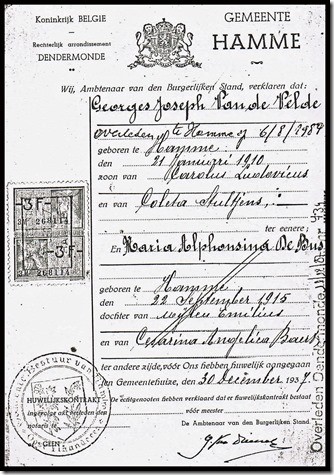 Koninkrijk BELGIE
Rechterlijk arrondissement
DENDERMONDE
GEMEENTE
HAMME
Wij, Ambtenaar van den Burgerlijken Stand, verklaren dat:
Georges Joseph Van de Velde
overleden te Hamme op 6/8/1984
geboren te Hamme
den 21 januari 1910
zoon van Carolus Ludovicus
en van Coleta Stultjens,
ter eenere;
En Maria Alphonsina De Bus
geboren te Hamme
den 22 September 1915
dochter van Emilius
en van Cesarina Angelica Baert
ter andere zijde, vóór Ons hebben huwelijk aangegaan
ten Gemeentehuize, den 30 December 1937
De echtgenooten hebben verklaard dat huwelijkskontrakt bestaat
vóór meester
De Ambtenaar van den Burgerl. Stand,
HUWELIJKSKONTRAKT
ingevolge akt verleden den
notaris te
GEEN
-3F-
268114
-3F-
268114
Overleden Dendermonde